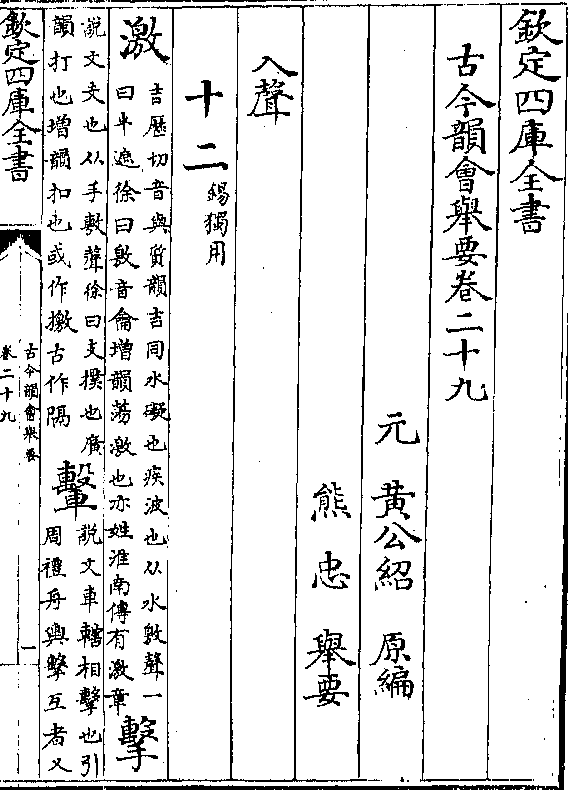 欽定四庫全書
古今韻會舉要卷二十九
元 黃公紹 原編
熊忠 舉要
入聲
十二 錫獨用
激 吉歷切音與質韻吉同水礙也疾波也从水敫聲一
曰半遮徐曰敫音龠增韻蕩激也亦姓淮南傳有激章 擊
說文攴也从手毄聲徐曰支撲也廣
韻打也增韻扣也或作撽古作隔 轚 說文車轄相擊也引
周禮舟輿擊互者又
欽定四庫全書
古今韻會舉要
卷二十九
一